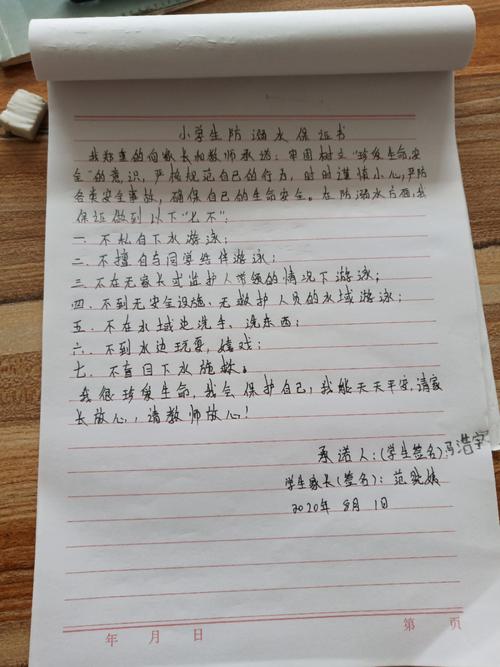 小学生防溺水保证书
我郑重的向家长和教师承诺：牢固树立"珍爱生命,安
全"的意识，严格规范自己的行为，时时谨慎小心,严防
各类安全事故，确保自己的生命安全。在防溺水方面,我
保证做到以下"七不"：
一.不私自下水游泳；
二.不擅自与同学结伴游泳；
三.不在无家长或监护人带领的情况下游泳；
四.不到无安全设施、无救护人员的水域游泳；
五.不在水域边洗手、洗东西；
六.不到水边玩耍，嬉戏；
七.不盲目下水施救。
我很珍爱生命，我会保护自己，我能天天平安,请家
长放心，请教师放心！
承诺人：(学生签名)冯浩宇
学生家长(签名)：范
2020年8月1日
年 月 日 第 页